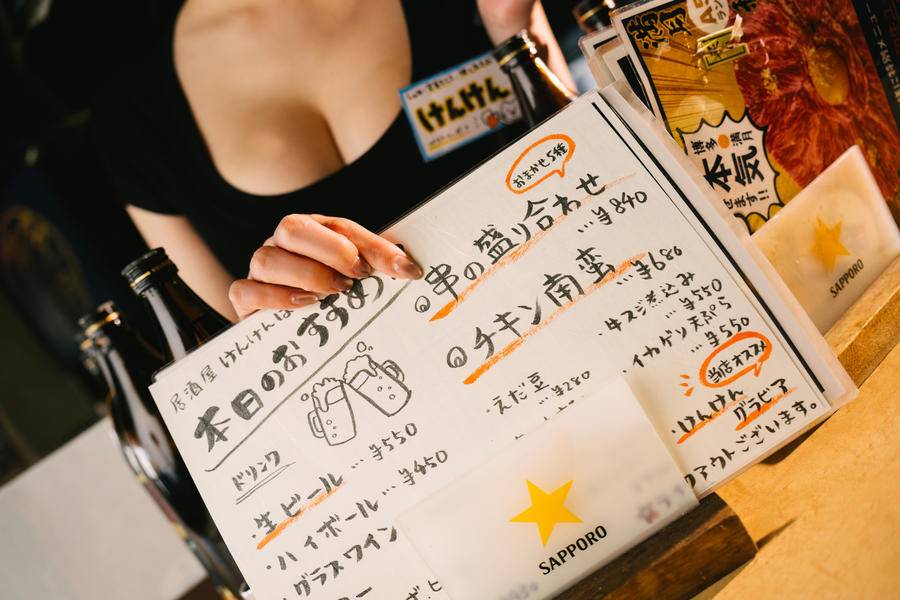 けんけん
博多 満月
本気
せます!!
SAPPORO
居酒屋 けんけん
本日のおすすめ
ドリンク
・生ビール … ¥550
・ハイボール … ¥450
・グラスワイン
おまかせ5種
◎串の盛り合わせ
… ¥840
◎チキン南蛮
… ¥680
・えだ豆 … ¥280
・牛スジ煮込み
… ¥550
・イカゲソ天ぷら
… ¥550
当店オススメ
けんけん
グラビア
アウトございます。
SAPPORO